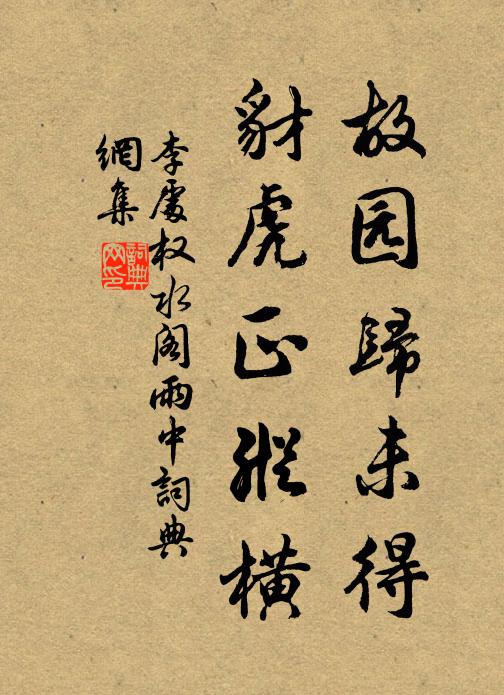 故园歸未得
豺虎正縱横
李處权水阁雨中詞典
網集
詞典
网印